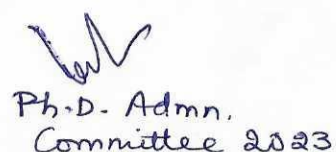 Ph.D. Admn.
Committee 2023